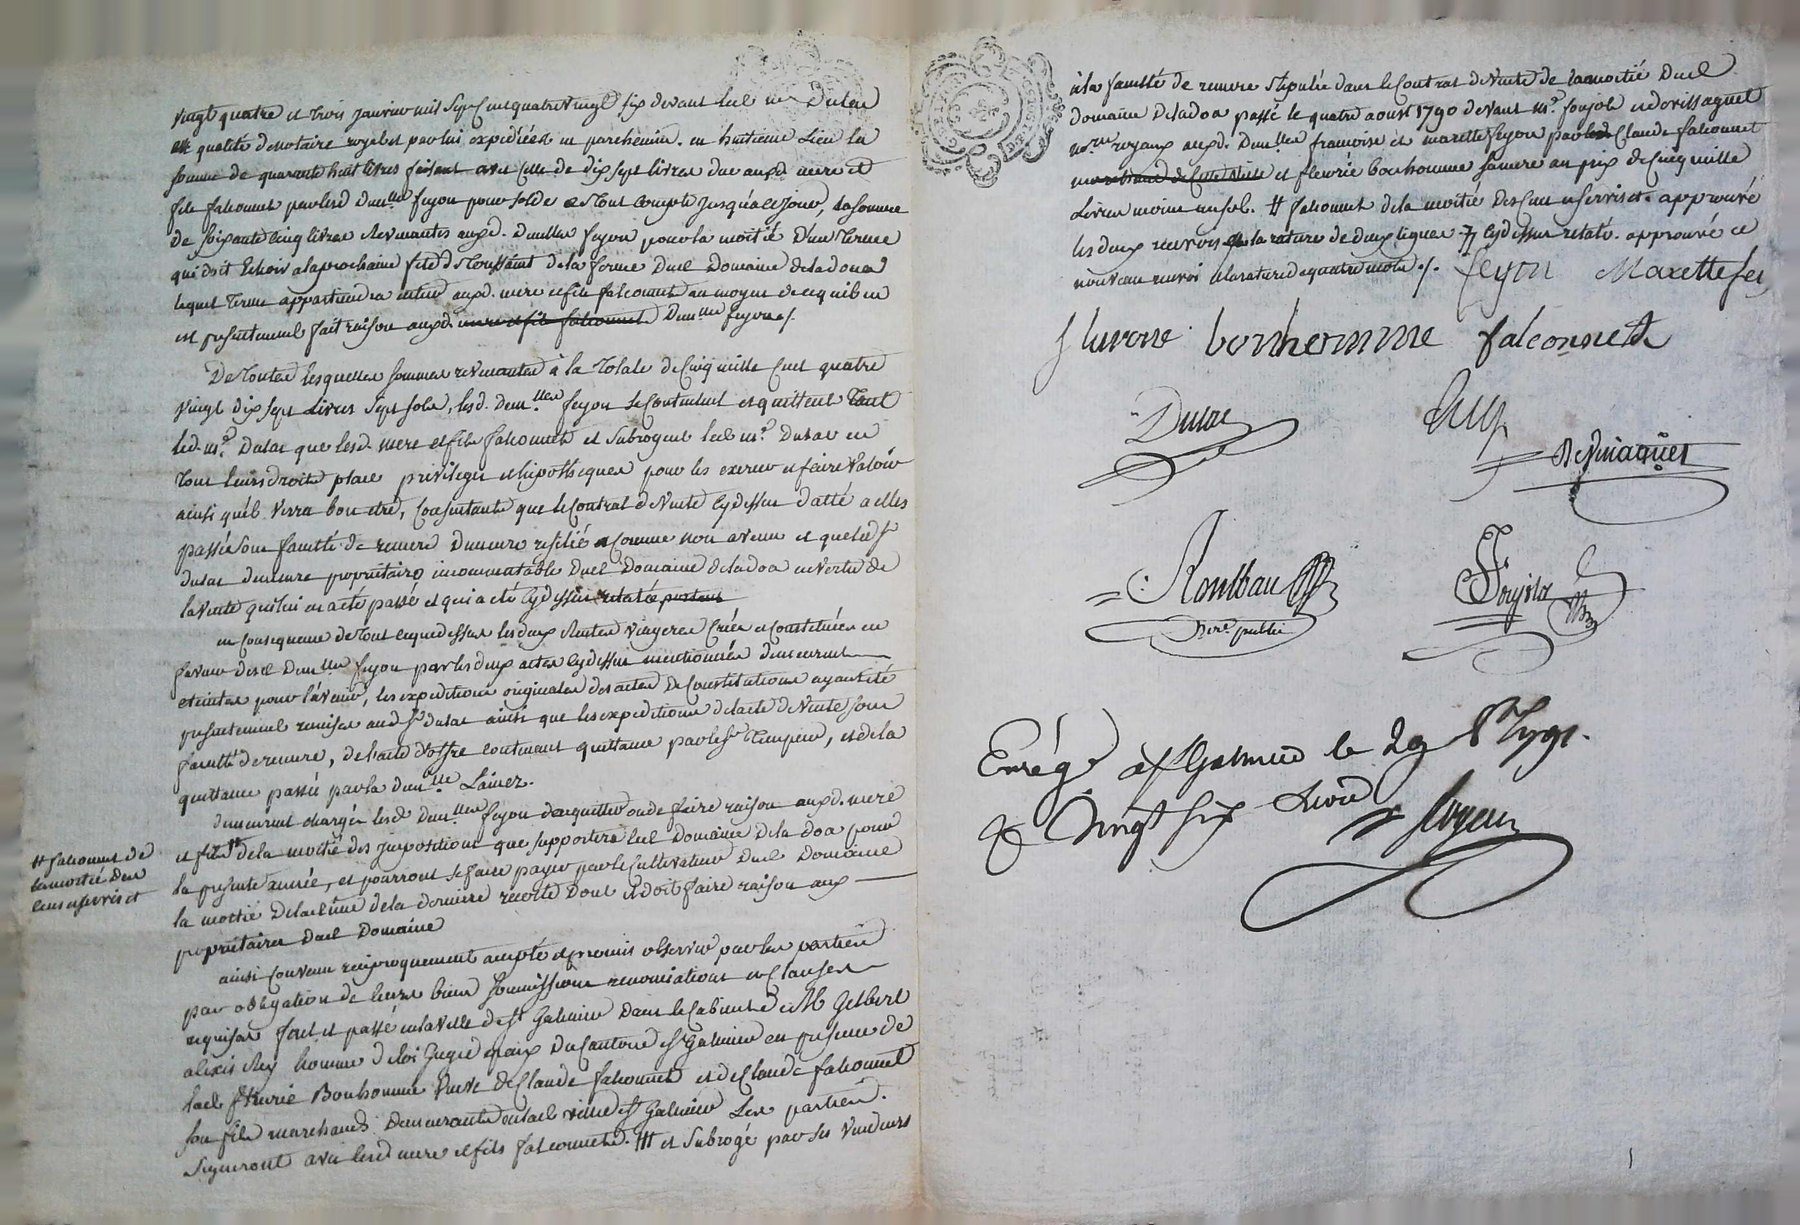 vingt quatre et trois janvier mil sept cent quatre vingt six devant led. me Dulac
en qualité de notaire royal et par lui expédiées en parchemin. en huitieme Lieu la
somme de quarante huit livres faisant avec celle de dix sept livres due auxd. mere et
fils falconnet par lesd. dem.lles feyon pour solde de tout compte jusqu'à ce jour, la somme
de soixante cinq livres revenantes auxd. dem.lles feyon pour la moitié d'un terme
qui doit échoir a la prochaine fête de Toussaint de la ferme dud. Domaine de la doa
lequel terme appartiendra entier auxd. mere et fils falconnet au moyen de ce qu'ils en
ont présentement fait raison auxd. mere et fils falconnet Dem.lles feyon ./.
De toutes lesquelles sommes revenantes à la totale de Cinq mille Cent quatre
vingt dix sept Livres Sept sols, lesd. dem.lles feyon se contentent et quittent tant
led. m.e Dulac que lesd. mere et fils falconnet et subrogent led. m.e Dulac en
tous leurs droits place privilèges et hipotheques pour les exercer et faire valoir
ainsi qu'il verra bon etre, Consentante que le Contrat de vente cy dessus datté a elles
passée sous faculté de remere demeure resilié et comme non avenu et que led. s.r
dulac demeure proprietaire incommutable dud. Domaine de la doa en vertu de
la vente qui lui en a été passée et qui a été cy dessus relatée
en consequence de tout ce que dessus les deux Rentes viageres Créées et Constituées en
faveur desd. Dem.lles feyon par les deux actes cy dessus mentionnés demeurent
eteintes pour l'avenir, les expeditions originales des actes de Constitutions ayant été
presentement remises aud. s.r dulac ainsi que les expeditions de l'acte de vente sous
faculté de remere, de l'acte d'offre contenant quittance par le s.r , et de la
quittance passée par la dem.lle Lainez.
demeurent chargées lesd. Dem.lles feyon d'acquitter ou de faire raison auxd. mere
et fils # de la moitié des impositions que supportera led. Domaine de la doa pour
la presente année, et pourront se faire payer par le Cultivateur dud. Domaine
la moitié de la de la derniere recolte dont il doit faire raison aux
proprietaires dud. Domaine
# falconnet de
la moitié des
cens et servis et
ainsi convenu reciproquement accepté et promis observer par les parties
par obligation de leurs biens soumissions renonciations et clauses
requises fait et passé en la ville de S.t Galmier dans le Cabinet de M. Gilbert
alexis Rey homme de loi juge de paix du Canton de S.t Galmier en presence de
lad. fleurie Bonhomme veuve de Claude falconnet et de Claude falconnet
son fils marchands demeurants en lad. ville de S.t Galmier Les parties
signeront avec lesd. mere et fils falconnet. ## et subrogé par ses vendeurs
à la faculté de remere stipulée dans le Contrat de vente de la moitié dud.
domaine de la doa passé le quatre aoust 1790 devant m.e soujol et
no.res royaux auxd. Dem.lles francoise et marette feyon par led. Claude falconnet
et fleurie bonhomme sa mere au prix de cinq mille
Livres moins un sol. # falconnet de la moitié des cens et servis et. approuvé
les deux renvois et la rature de deux lignes. cy dessus relaté. approuvé ce
nouveau renvoi et la rature de quatre mots ./. feyon Marette fey
fluvone bonhomme falconnet
Dulac
Rey
Rombau
No.re public
Soujol
Enreg.é à S.t Galmier le 29 8.bre 1791.
R vingt six Livres